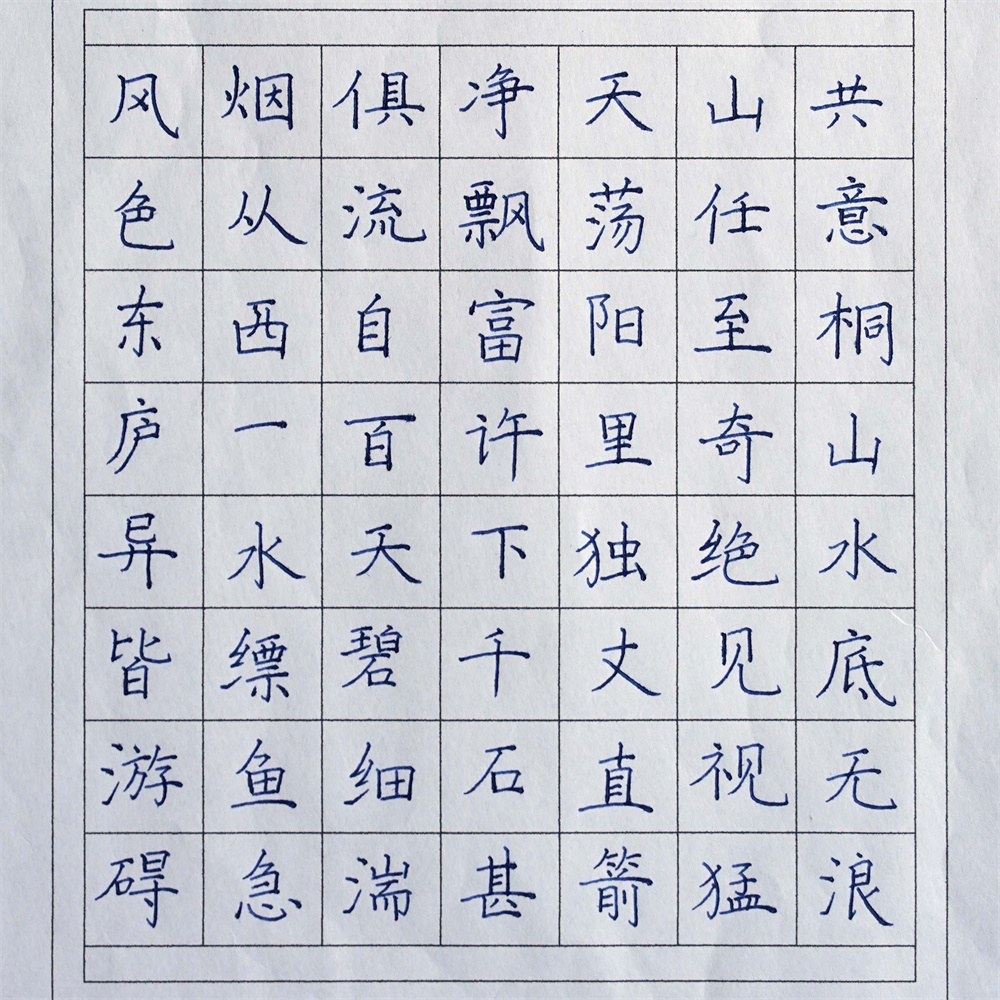 风烟俱净天山共
色从流飘荡任意
东西自富阳至桐
庐一百许里奇山
异水天下独绝水
皆缥碧千丈见底
游鱼细石直视无
碍急湍甚箭猛浪